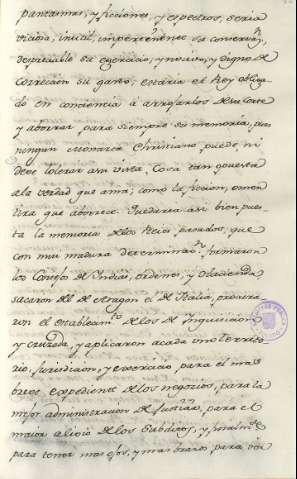 pantasmas, y ficciones, y espectros, seria
viciosa, inutil, impertinente su conservaⁿ,
despreciable su exercicio, y nocivo, y digno de
correccion su gasto; estaria el Rey obliga
do en conciencia à arrojarlos de su corte
y aborrar para siempre su memoria, pues
ningun Monarca Christiano puede, ni
debe tolerar asu vista, Cosa tan opuesta
ala verdad que ama, como la ficcion, omen
tira que aborrece. Quedaria asi bien pues
ta la memoria delos Reies pasados, que
con mui madura determinaᵒⁿ formaron
los Consejos de Indias, ordenes, y Hacienda
sacaron del de Aragon el de Italia, procura
ron el establecimᵗᵒ delos de Inquisicion
y cruzada, y aplicaron acada uno territo
rio, jurisdicion, y exercicio para el mas
breve expediente delos negocios, para la
mejor administracion de Justicia, para el
maior alivio delos Subditos, y finalmᵗᵉ
para tener mas ojos, y mas brazos, para